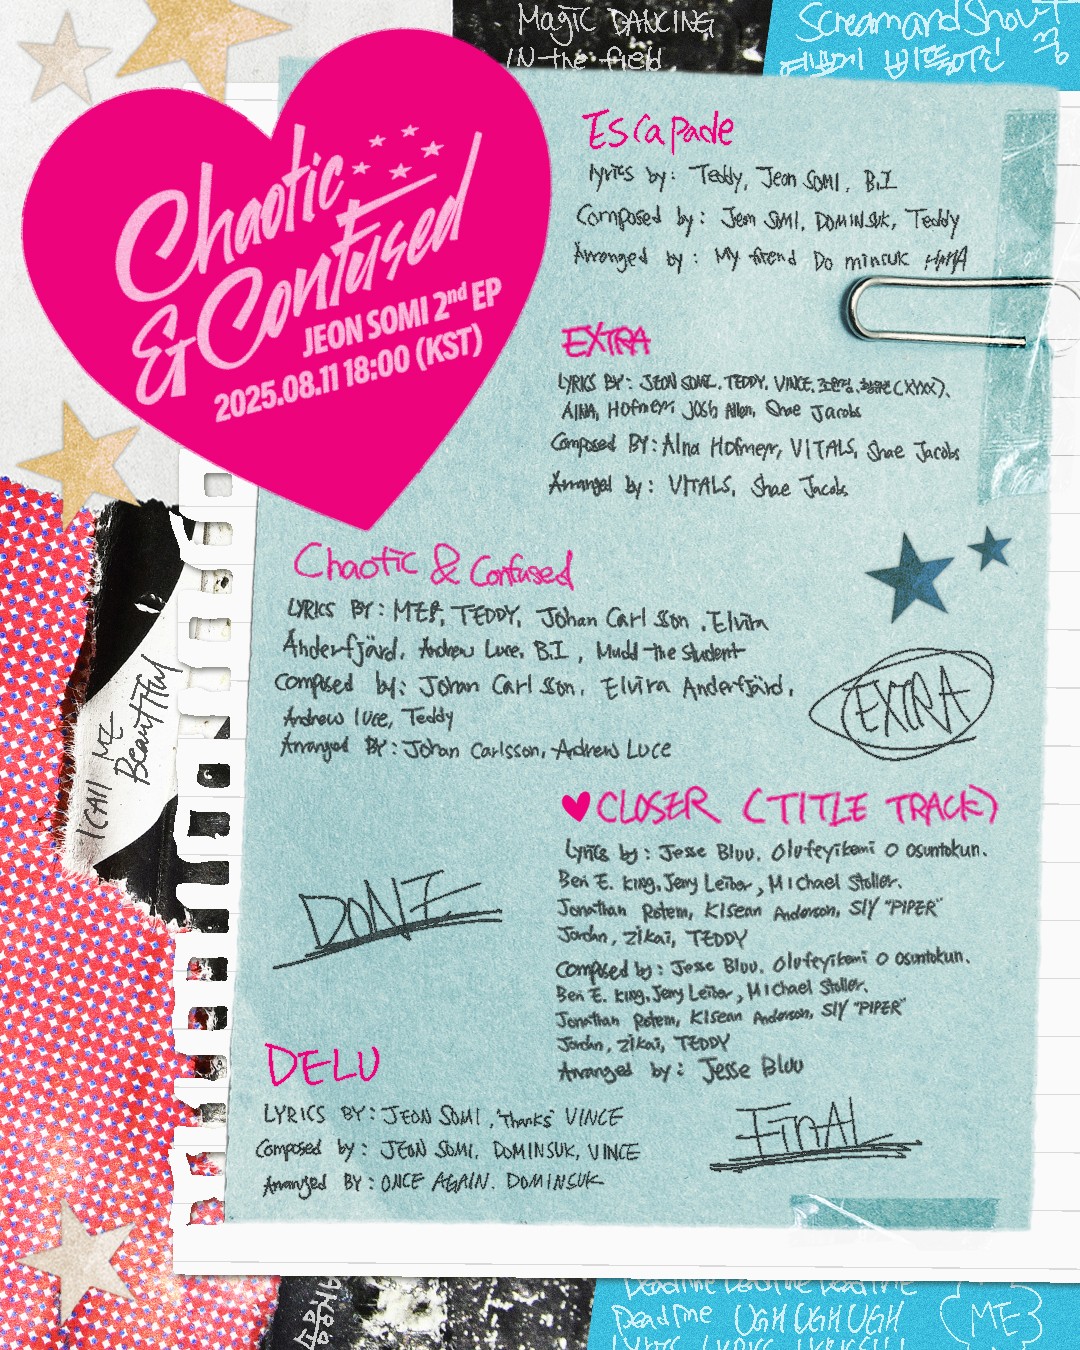 Magic DANCING
IN the field
Scream and Shout
Chaotic
& Confused
JEON SOMI 2nd EP
2025.08.11 18:00 (KST)
Escapade
lyrics by: Teddy, Jeon SOMI, B.I
Composed by: Jeon SOMI, DOMINSUK, Teddy
Arranged by: My friend Do minsuk HAHA
EXTRA
LYRICS BY: JEON SOMI, TEDDY, VINCE, (XYXX),
AINA, Hofmeyr, Josh Allen, Shae Jacobs
Composed BY: AIna Hofmeyr, VITALS, Shae Jacobs
Arranged by: VITALS, Shae Jacobs
Chaotic & Confused
LYRICS BY: TEDDY, Johan Carlsson, Elvira
Anderfjärd, Andrew Luce, B.I, Mudd the student
Composed by: Johan Carlsson, Elvira Anderfjärd,
Andrew luce, Teddy
Arranged BY: Johan Carlsson, Andrew Luce
EXTRA
I CAll ME
Beautiful
♥ CLOSER (TITLE TRACK)
Lyrics by: Jesse Bluu, Olufeyikemi O Osuntokun,
Ben E. King, Jerry Leiber, Michael Stoller,
Jonathan Rotem, KIsean Anderson, SlY "PIPER"
Jordan, Zikai, TEDDY
Composed by: Jesse Bluu, Olufeyikemi O Osuntokun,
Ben E. King, Jerry Leiber, Michael Stoller,
Jonathan Rotem, KIsean Anderson, SlY "PIPER"
Jordan, Zikai, TEDDY
Arranged by: Jesse Bluu
DONE
DELU
LYRICS BY: JEON SOMI, "Thanks" VINCE
Composed by: JEON SOMI, DOMINSUK, VINCE
Arranged BY: ONCE AGAIN. DOMINSUK
FinAL
Deadline UGH UGH UGH
ME